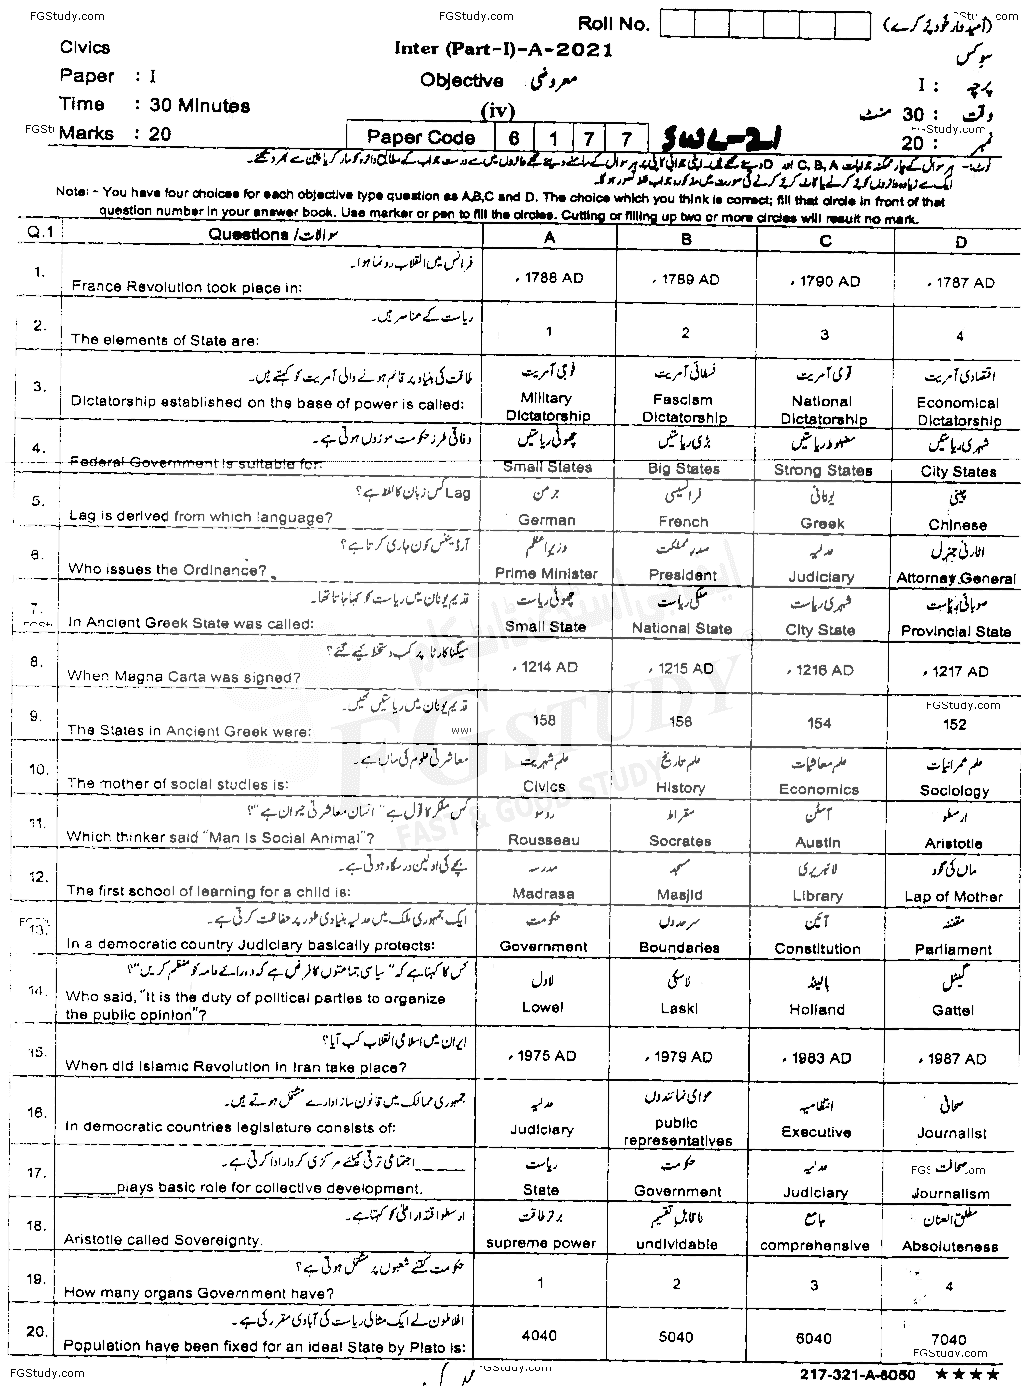 FGStudy.com FGStudy.com
Roll No. (امیدوار خود پُر کرے)
Civics Inter (Part-I)-A-2021 سوکس
Paper : I Objective معروضی پرچہ : I
Time : 30 Minutes (iv) وقت : 30 منٹ
Marks : 20 Paper Code 6 1 7 7 SWL-21 نمبر : 20
Note: - You have four choices for each objective type question as A,B,C and D. The choice which you think is correct; fill that circle in front of that
question number in your answer book. Use marker or pen to fill the circles. Cutting or filling up two or more circles will result no mark.
Q.1 Questions / سوالات A B C D
1. فرانس میں انقلاب رونما ہوا۔
France Revolution took place in: 1788 AD 1789 AD 1790 AD 1787 AD
2. ریاست کے عناصر ہیں۔
The elements of State are: 1 2 3 4
3. طاقت کی بنیاد پر قائم ہونے والی آمریت کو کہتے ہیں۔ فوجی آمریت فسطائی آمریت قومی آمریت اقتصادی آمریت
Dictatorship established on the base of power is called: Military Dictatorship Fascism Dictatorship National Dictatorship Economical Dictatorship
4. وفاقی طرز حکومت موزوں ہوتی ہے۔ چھوٹی ریاستیں بڑی ریاستیں مضبوط ریاستیں شہری ریاستیں
Federal Government is suitable for: Small States Big States Strong States City States
5. Lag کس زبان کا لفظ ہے؟ جرمن فرانسیسی یونانی چینی
Lag is derived from which language? German French Greek Chinese
6. آرڈیننس کون جاری کرتا ہے؟ وزیراعظم صدر مملکت عدلیہ اٹارنی جنرل
Who issues the Ordinance? Prime Minister President Judiciary Attorney General
7. قدیم یونان میں ریاست کو کہا جاتا تھا۔ چھوٹی ریاست ملکی ریاست شہری ریاست صوبائی ریاست
In Ancient Greek State was called: Small State National State City State Provincial State
8. میگنا کارٹا پر کب دستخط کیے گئے؟
When Magna Carta was signed? 1214 AD 1215 AD 1216 AD 1217 AD
9. قدیم یونان میں ریاستیں تھیں۔ FGStudy.com
The States in Ancient Greek were: 158 156 154 152
10. معاشرتی علوم کی ماں ہے۔ علم شہریت علم تاریخ علم معاشیات علم عمرانیات
The mother of social studies is: Civics History Economics Sociology
11. کس مفکر کا قول ہے "انسان معاشرتی حیوان ہے"؟ روسو سقراط آسٹن ارسطو
Which thinker said "Man Is Social Animal"? Rousseau Socrates Austin Aristotle
12. بچے کی اولین درسگاہ ہوتی ہے۔ مدرسہ مسجد لائبریری ماں کی گود
The first school of learning for a child is: Madrasa Masjid Library Lap of Mother
13. ایک جمہوری ملک میں عدلیہ بنیادی طور پر حفاظت کرتی ہے۔ حکومت سرحدوں آئین مقننہ
In a democratic country Judiciary basically protects: Government Boundaries Constitution Parliament
14. کس کا کہنا ہے کہ "سیاسی جماعتوں کا فرض ہے کہ وہ رائے عامہ کو منظم کریں"؟ لاول لاسکی ہالینڈ گیٹل
Who said, "It is the duty of political parties to organize
the public opinion"? Lowel Laski Holland Gattel
15. ایران میں اسلامی انقلاب کب آیا؟
When did Islamic Revolution in Iran take place? 1975 AD 1979 AD 1983 AD 1987 AD
16. جمہوری ممالک میں قانون ساز ادارے مشتمل ہوتے ہیں۔ عدلیہ عوامی نمائندوں انتظامیہ صحافی
In democratic countries legislature consists of: Judiciary public representatives Executive Journalist
17. ______ اجتماعی ترقی کیلئے مرکزی کردار ادا کرتی ہے۔ ریاست حکومت عدلیہ صحافت
______plays basic role for collective development. State Government Judiciary Journalism
18. ارسطو اقتدار اعلیٰ کو کہتا ہے۔ برتر طاقت ناقابل تقسیم جامع مطلق العنان
Aristotle called Sovereignty. supreme power undividable comprehensive Absoluteness
19. حکومت کتنے شعبوں پر مشتمل ہوتی ہے؟
How many organs Government have? 1 2 3 4
20. افلاطون نے ایک مثالی ریاست کی آبادی مقرر کی ہے۔
Population have been fixed for an ideal State by Plato is: 4040 5040 6040 7040
FGStudy.com
FGStudy.com 217-321-A-6050 ★★★★
FG STUDY
FAST & GOOD STUDY